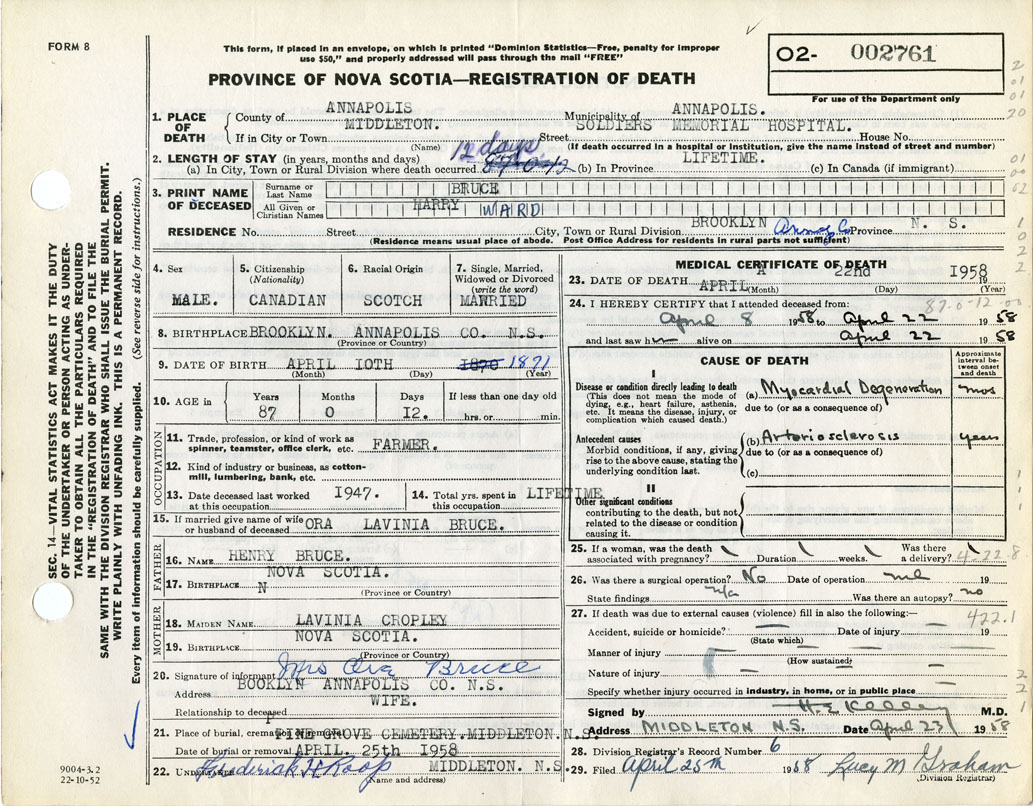 FORM 8
This form, if placed in an envelope, on which is printed "Dominion Statistics—Free, penalty for improper
use $50," and properly addressed will pass through the mail "FREE"
PROVINCE OF NOVA SCOTIA—REGISTRATION OF DEATH
O2- 002761
For use of the Department only
2
01
01
20
1. PLACE OF DEATH
County of ANNAPOLIS Municipality of ANNAPOLIS.
If in City or Town MIDDLETON. Street SOLDIERS MEMORIAL HOSPITAL. House No.
(Name) (If death occurred in a hospital or institution, give the name instead of street and number)
2. LENGTH OF STAY (in years, months and days)
(a) In City, Town or Rural Division where death occurred 12 days (b) In Province LIFETIME. (c) In Canada (if immigrant)
01
00
02
3. PRINT NAME OF DECEASED
Surname or Last Name BRUCE
All Given or Christian Names HARRY WARD
RESIDENCE No. Street City, Town or Rural Division BROOKLYN Annap Co Province N. S.
(Residence means usual place of abode. Post Office Address for residents in rural parts not sufficient)
1
0
2
2
4. Sex
MALE.
5. Citizenship
(Nationality)
CANADIAN
6. Racial Origin
SCOTCH
7. Single, Married,
Widowed or Divorced
(write the word)
MARRIED
8. BIRTHPLACE BROOKLYN. ANNAPOLIS CO. N.S.
(Province or Country)
9. DATE OF BIRTH APRIL IOTH 1870 1871
(Month) (Day) (Year)
10. AGE in
Years Months Days If less than one day old
87 0 I2. hrs. or min.
OCCUPATION
11. Trade, profession, or kind of work as
spinner, teamster, office clerk, etc. FARMER.
12. Kind of industry or business, as cotton-
mill, lumbering, bank, etc.
13. Date deceased last worked
at this occupation. I947.
14. Total yrs. spent in
this occupation. LIFETIME
15. If married give name of wife
or husband of deceased ORA LAVINIA BRUCE.
FATHER
16. NAME HENRY BRUCE.
17. BIRTHPLACE N NOVA SCOTIA.
(Province or Country)
MOTHER
18. MAIDEN NAME LAVINIA CROPLEY
19. BIRTHPLACE NOVA SCOTIA.
(Province or Country)
20. Signature of informant Mrs Ora Bruce
Address BOOKLYN ANNAPOLIS CO. N.S.
Relationship to deceased WIFE.
21. Place of burial, cremation or removal PINE GROVE CEMETERY.MIDDLETON.N.S.
Date of burial or removal APRIL. 25th I958
22. Undertaker Frederick H Roop MIDDLETON. N.S.
(Name and address)
MEDICAL CERTIFICATE OF DEATH
23. DATE OF DEATH A APRIL 22nd I958
(Month) (Day) (Year)
24. I HEREBY CERTIFY that I attended deceased from: 87-0-12-00
April 8 1958 to April 22 1958
and last saw him alive on April 22 1958
CAUSE OF DEATH
Approximate
interval be-
tween onset
and death
I
Disease or condition directly leading to death
(This does not mean the mode of
dying, e.g., heart failure, asthenia,
etc. It means the disease, injury, or
complication which caused death.)
(a) Myocardial Degeneration mos
due to (or as a consequence of)
Antecedent causes
Morbid conditions, if any, giving
rise to the above cause, stating the
underlying condition last.
(b) Arteriosclerosis years
due to (or as a consequence of)
(c)
II
Other significant conditions
contributing to the death, but not
related to the disease or condition
causing it.
1
1
1
25. If a woman, was the death
associated with pregnancy? Duration weeks. Was there
a delivery? 4-22.8
26. Was there a surgical operation? No Date of operation 19
State findings n/a Was there an autopsy? no
27. If death was due to external causes (violence) fill in also the following:—
422.1
Accident, suicide or homicide? Date of injury 19
(State which)
Manner of injury
(How sustained)
Nature of injury
Specify whether injury occurred in industry, in home, or in public place
2
2
1
Signed by H. E. Kelley M.D.
Address MIDDLETON N.S. Date April 23 1958
28. Division Registrar's Record Number 6
29. Filed April 25th 1958 Lucy M Graham
(Division Registrar)
SEC. 14—VITAL STATISTICS ACT MAKES IT THE DUTY
OF THE UNDERTAKER OR PERSON ACTING AS UNDER-
TAKER TO OBTAIN ALL THE PARTICULARS REQUIRED
IN THE "REGISTRATION OF DEATH" AND TO FILE THE
SAME WITH THE DIVISION REGISTRAR WHO SHALL ISSUE THE BURIAL PERMIT.
WRITE PLAINLY WITH UNFADING INK. THIS IS A PERMANENT RECORD.
Every item of information should be carefully supplied. (See reverse side for instructions.)
9004-3.2
22-10-52